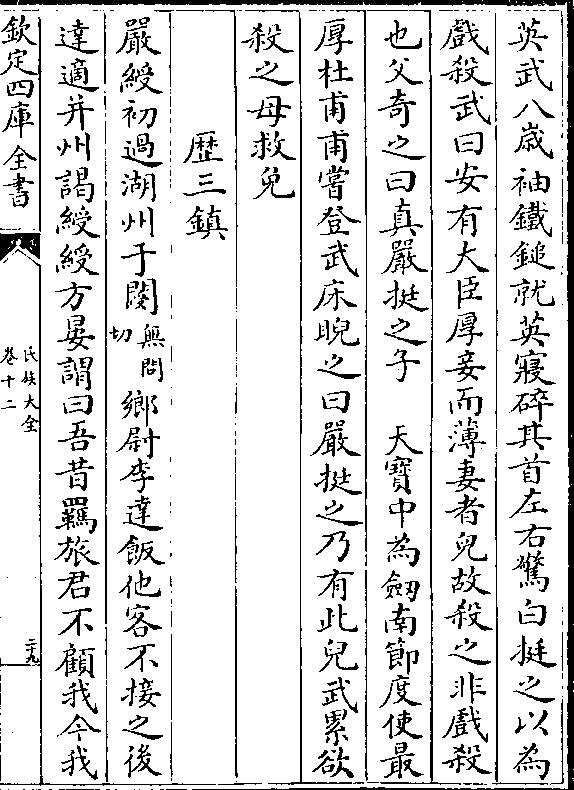 英武八歳袖鐵鎚就英寢碎其首左右驚白挺之以為
戲殺武曰安有大臣厚妾而薄妻者兒故殺之非戲殺
也父奇之曰真嚴挺之子　天寶中為劒南節度使最
厚杜甫甫嘗登武床睨之曰嚴挺之乃有此兒武累欲
殺之母救免
歴三鎮
嚴綬初過湖州于閿無問切鄉尉李達飯他客不接之後
達適并州謁綬綬方晏謂曰吾昔羈旅君不顧我今我
欽定四庫全書
氏族大全
卷十二
二十九